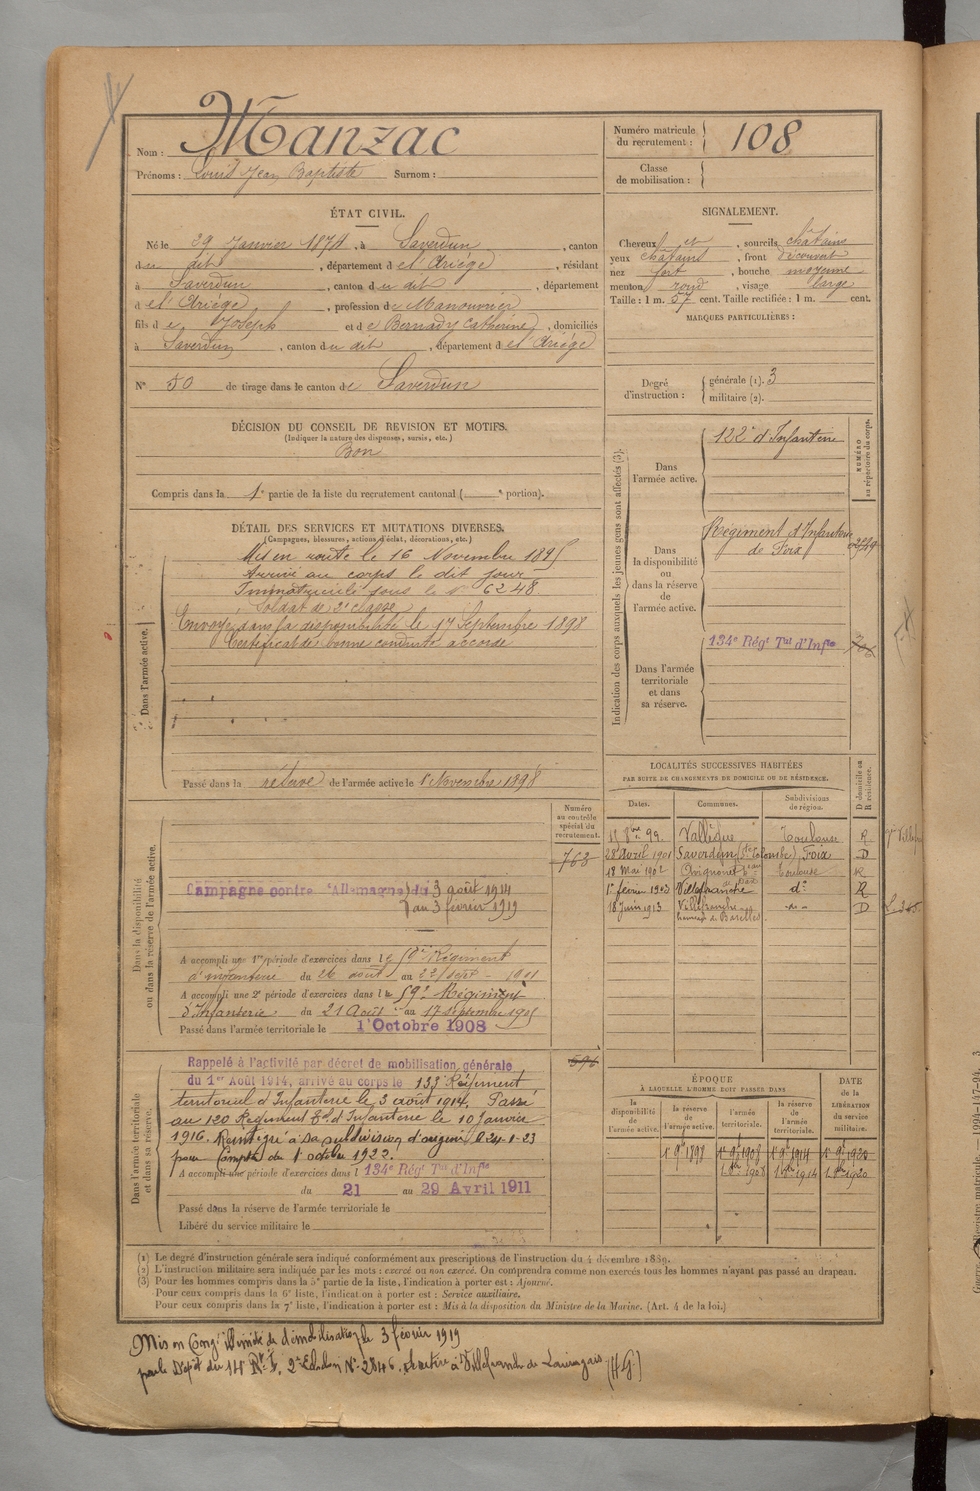 Nom : Manzac
Prénoms : Louis Jean Baptiste Surnom :
Numéro matricule du recrutement : 108
Classe de mobilisation :
ÉTAT CIVIL.
Né le 29 Janvier 1874, à Saverdun, canton
du dit, département de l'Ariège, résidant
à Saverdun, canton du dit, département
de l'Ariège, profession de Manouvrier
fils de Joseph et de Bernady Catherine, domiciliés
à Saverdun, canton du dit, département de l'Ariège
N° 50 de tirage dans le canton de Saverdun
SIGNALEMENT.
Cheveux et, sourcils châtains
yeux châtains, front découvert
nez fort, bouche moyenne
menton rond, visage large
Taille : 1 m. 57 cent. Taille rectifiée : 1 m. cent.
MARQUES PARTICULIÈRES :
Degré d'instruction : générale (1). 3
militaire (2).
DÉCISION DU CONSEIL DE REVISION ET MOTIFS.
(Indiquer la nature des dispenses, sursis, etc.)
Bon
Compris dans la 1e partie de la liste du recrutement cantonal ( e portion).
DÉTAIL DES SERVICES ET MUTATIONS DIVERSES.
(Campagnes, blessures, actions d'éclat, décorations, etc.)
Dans l'armée active.
Mis en route le 16 Novembre 1895
Arrivé au corps le dit jour
Immatriculé sous le n° 6248
Soldat de 2e classe
Envoyé dans la disponibilité le 17 Septembre 1898
Certificat de bonne conduite accordé
Passé dans la réserve de l'armée active le 1 Novembre 1898
Indication des corps auxquels les jeunes gens sont affectés (3).
NUMÉRO au répertoire du corps.
Dans l'armée active.
122e d'Infanterie
Dans la disponibilité ou dans la réserve de l'armée active.
Régiment d'Infanterie
de Foix
Dans l'armée territoriale et dans sa réserve.
134e Régt Tal d'Infie
LOCALITÉS SUCCESSIVES HABITÉES
PAR SUITE DE CHANGEMENTS DE DOMICILE OU DE RÉSIDENCE.
Dates. Communes. Subdivisions de région. D domicile ou R résidence.
8bre 99. Vallègue Toulouse R
28 Avril 1901 Saverdun (Ste Colombe) Foix D
18 Mai 1902 Avignonet Toulouse R
1er février 1903 Villefranche do R
18 Juin 1913 Villefranche D
Dans la disponibilité ou dans la réserve de l'armée active.
Numéro au contrôle spécial du recrutement.
763
Campagne contre l'Allemagne du 3 août 1914
au 3 février 1919
A accompli une 1re période d'exercices dans le 59e Régiment
d'infanterie du 26 août au 22 sept 1901
A accompli une 2e période d'exercices dans le 59e Régiment
d'Infanterie du 21 Août au 17 septembre 1905
Passé dans l'armée territoriale le 1 Octobre 1908
Dans l'armée territoriale et dans sa réserve.
Rappelé à l'activité par décret de mobilisation générale
du 1er Août 1914, arrivé au corps le 133e Régiment
territorial d'Infanterie le 3 août 1914. Passé
au 120 Régiment tal d'Infanterie le 10 Janvier
1916. Réintègre à sa subdivision d'origine le 24-1-23
pour compter du 1 octobre 1922.
A accompli une période d'exercices dans l 134e Régt Tal d'Infie
du 21 au 29 Avril 1911
Passé dans la réserve de l'armée territoriale le
Libéré du service militaire le
ÉPOQUE
À LAQUELLE L'HOMME DOIT PASSER DANS
la disponibilité de l'armée active. la réserve de l'armée active. l'armée territoriale. la réserve de l'armée territoriale.
DATE de la LIBÉRATION du service militaire.
1er 9bre 1898 1er 9bre 1908 1er 9bre 1914 1er 9bre 1920
1 8bre 1908 1 8bre 1914 1 8bre 1920
(1) Le degré d'instruction générale sera indiqué conformément aux prescriptions de l'instruction du 4 décembre 1889.
(2) L'instruction militaire sera indiquée par les mots : exercé ou non exercé. On comprendra comme non exercés tous les hommes n'ayant pas passé au drapeau.
(3) Pour les hommes compris dans la 5e partie de la liste, l'indication à porter est : Ajourné.
Pour ceux compris dans la 6e liste, l'indication à porter est : Service auxiliaire.
Pour ceux compris dans la 7e liste, l'indication à porter est : Mis à la disposition du Ministre de la Marine. (Art. 4 de la loi.)
Mis en Congé illimité de démobilisation le 3 février 1919
par le Dépôt du 14e R. I. 2e Echelon N° 2846. se retire à Villefranche de Lauragais (H.G.)